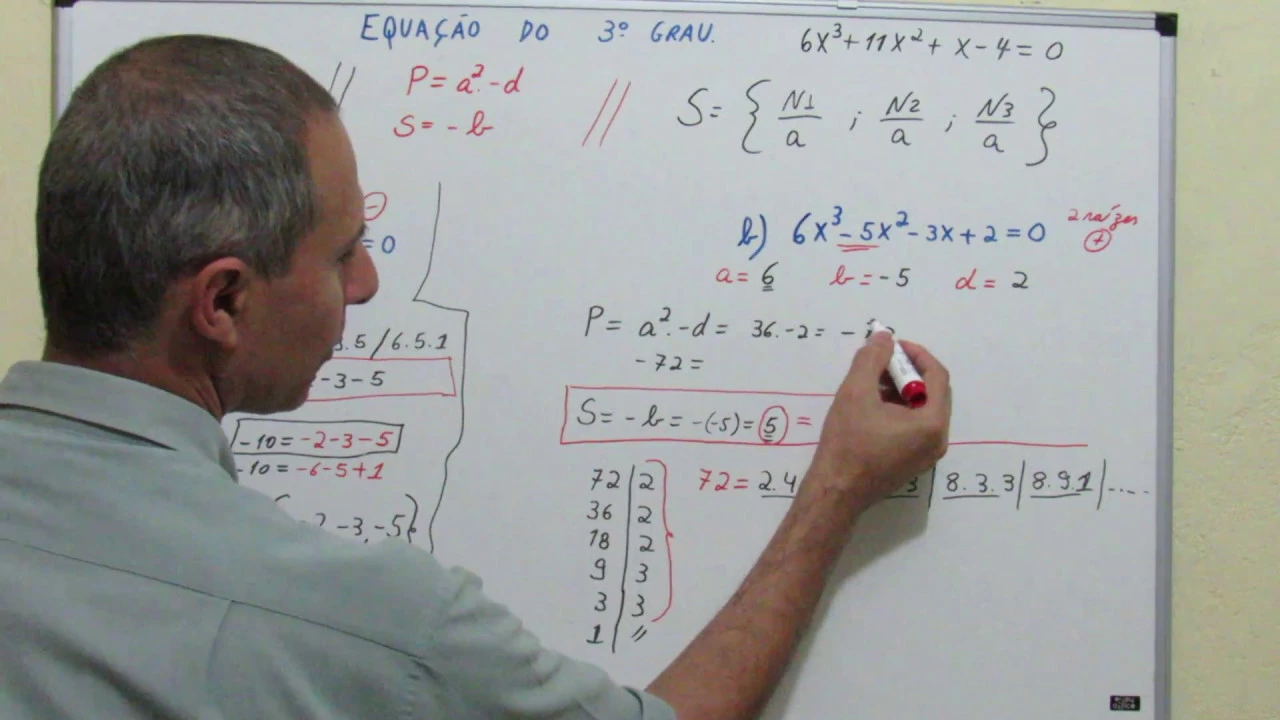 EQUAÇÃO DO 3º GRAU.
6x³+11x²+x-4=0
P=a².-d
S=-b
S={N1/a ; N2/a ; N3/a}
=0
b) 6x³-5x²-3x+2=0
2 raízes
+
a=6 b=-5 d=2
P=a².-d=36.-2=-
-72=
.5/6.5.1
-3-5
S=-b=-(-5)=5=
-10=-2-3-5
-10=-6-5+1
-3,-5}
72|2
36|2
18|2
9|3
3|3
1|//
72=2.4 3|8.3.3|8.9.1|....